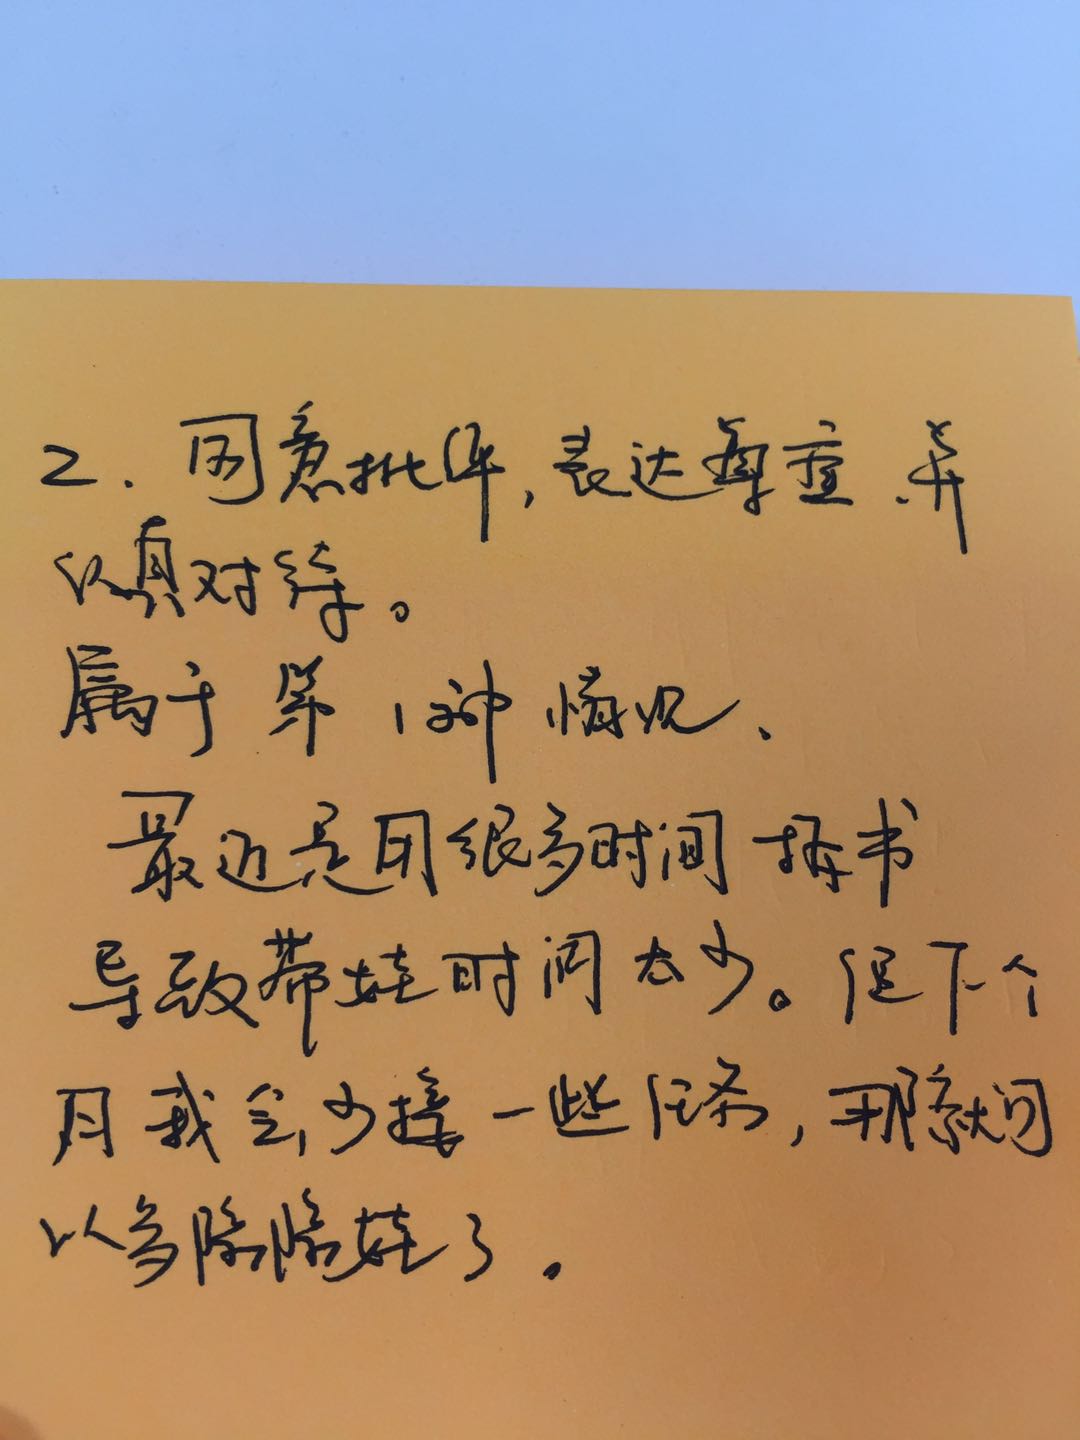 2. 同意批评,表达尊重,并
认真对待。
属于第1种情况、
最近是用很多时间拆书
导致带娃时间太少。但下个
月我会少接一些任务,那就可
以多陪陪娃了。